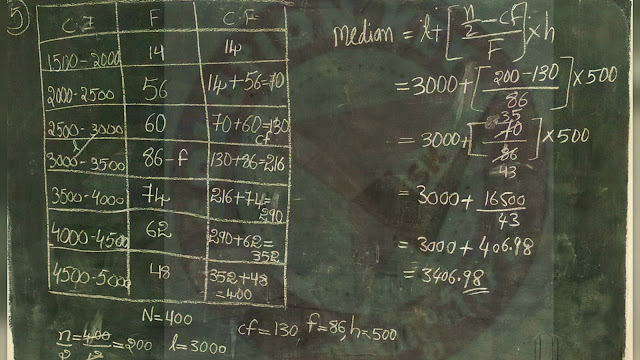 5)
C.I F C.F
1500-2000 14 14
2000-2500 56 14+56=70
2500-3000 60 70+60=130
cf
l
3000-3500 86-f 130+86=216
3500-4000 74 216+74=
290
4000-4500 62 290+62=
352
4500-5000 48 352+48
=400
N=400
n/2=400/2=200 l=3000
cf=130, f=86, h=500
median = l+[n/2-cf/F]×h
=3000+[200-130/86]×500
35
=3000+[70/86]×500
43
=3000+16500/43
=3000+406.98
=3406.98